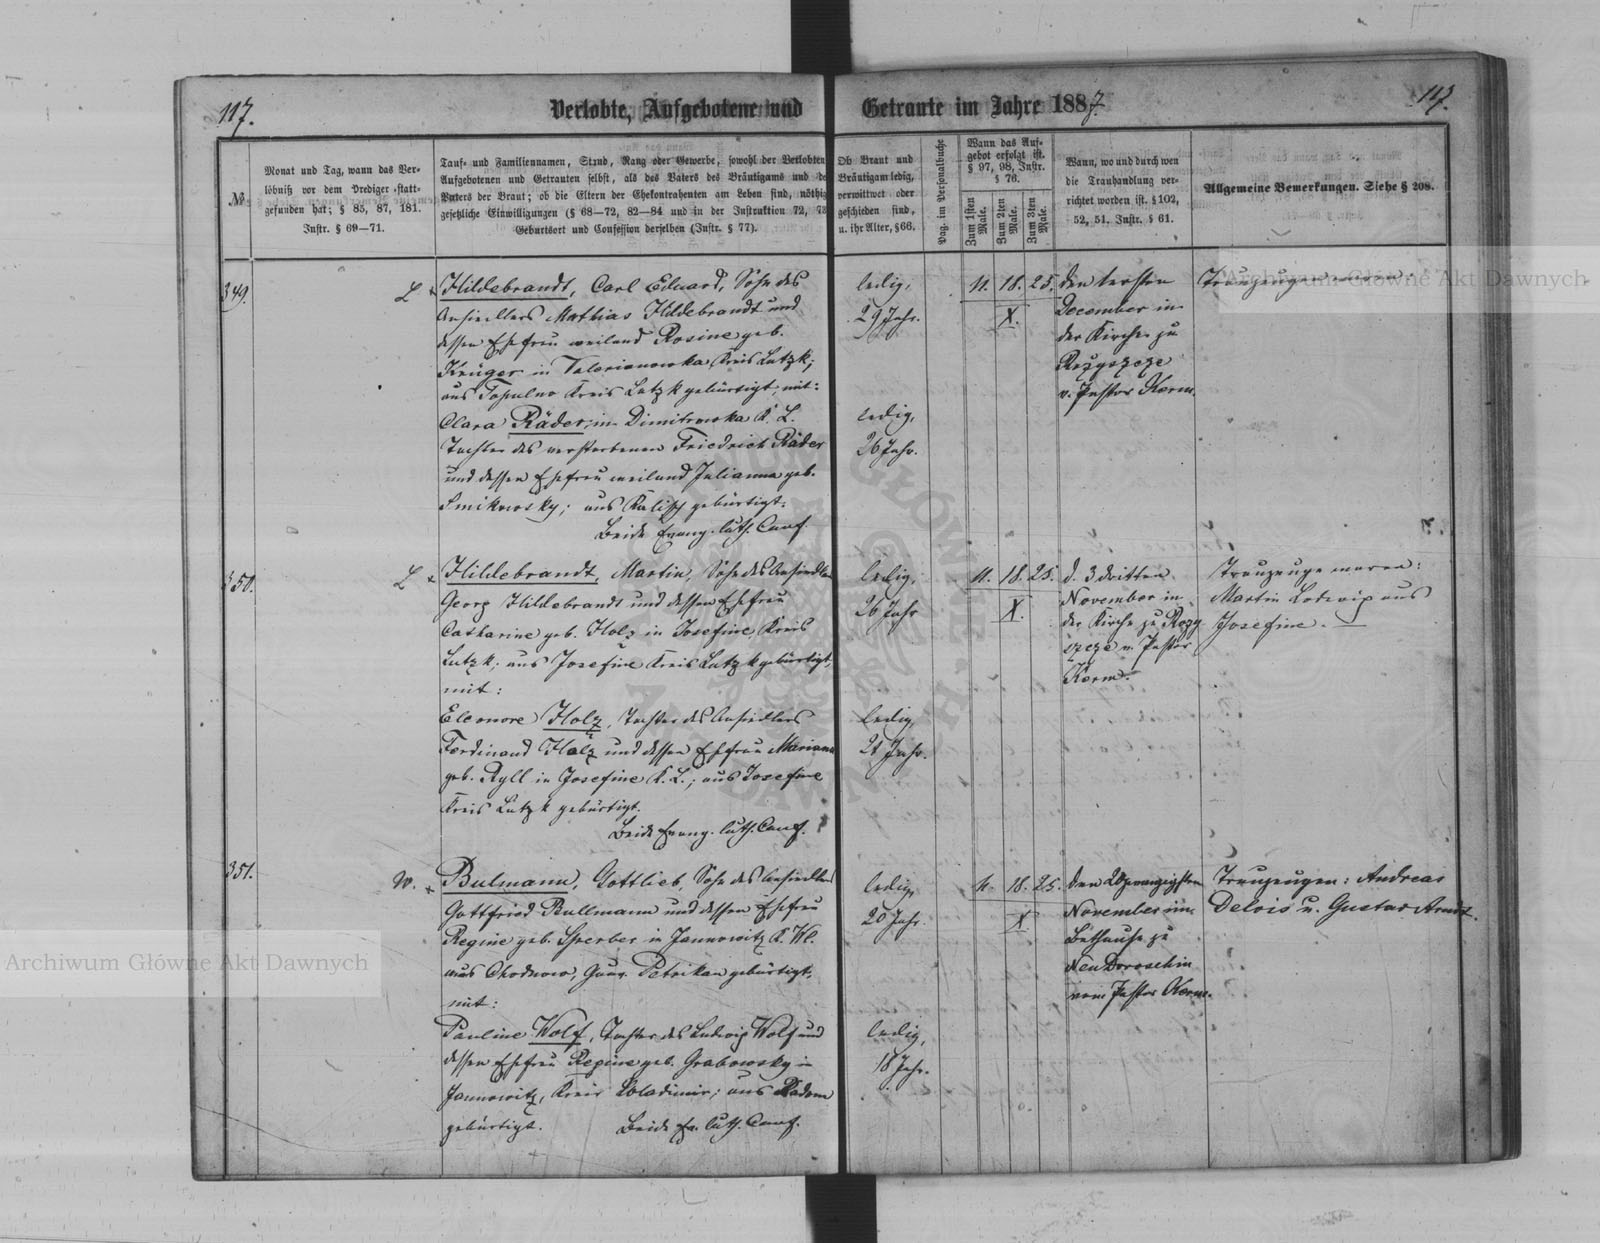 117.
Verlobte, Aufgebotene und
Getraute im Jahre 1887.
117.
№
Monat und Tag, wann das Ver-
löbniß vor dem Prediger statt-
gefunden hat; § 85, 87, 181.
Instr. § 69—71.
Tauf- und Familiennamen, Stand, Rang oder Gewerbe, sowohl der Verlobten
Aufgebotenen und Getrauten selbst, als des Vaters des Bräutigams und de
Vaters der Braut; ob die Eltern der Ehekontrahenten am Leben sind, nöthig
gesetzliche Einwilligungen (§ 68—72, 82—84 und in der Instruktion 72, 73
Geburtsort und Confession derselben (Instr. § 77).
Ob Braut und
Bräutigam ledig,
verwittwet oder
geschieden sind,
u. ihr Alter, § 66.
Pag. im Personalbuche
Wann das Auf-
gebot erfolgt ist.
§ 97, 98, Instr.
§ 76.
Zum 1sten
Male.
Zum 2ten
Male.
Zum 3ten
Male.
Wann, wo und durch wen
die Trauhandlung ver-
richtet worden ist. § 102,
52, 51. Instr. § 61.
Allgemeine Bemerkungen. Siehe § 208.
349.
L
Hildebrandt, Carl Eduard, Sohn des
Ansiedlers Mathias Hildebrandt und
dessen Ehefrau weiland Rosine geb.
Krüger in Valerianowka, Kreis Lutzk;
aus Topulno Kreis Lutzk gebürtigt, mit:
Clara Räder, in Dimitrowka K. L.
Tochter des verstorbenen Friedrich Räder
und dessen Ehefrau weiland Julianna geb.
Smikowsky; aus Kalisch gebürtigt.
Beide Evang. luth. Conf.
ledig,
29 Jahr.
ledig,
26 Jahr.
11. 18. 25.
X.
den ersten
December in
der Kirche zu
Rozyszcze
v. Pastor Kerm.
Trauzeugen
350.
L
Hildebrandt, Martin, Sohn des Ansiedlers
Georg Hildebrandt und dessen Ehefrau
Catharine geb. Holz in Josefine, Kreis
Lutzk; aus Josefine Kreis Lutzk gebürtigt,
mit:
Eleonore Holz, Tochter des Ansiedlers
Ferdinand Holz und dessen Ehefrau Marianna
geb. Ryll in Josefine K. L.; aus Josefine
Kreis Lutzk gebürtigt.
Beide Evang. luth. Conf.
ledig,
26 Jahr
ledig,
21 Jahr.
11. 18. 25.
X.
d. 3 dritten
November in
der Kirche zu Rozy
szcze v. Pastor
Kerm.
Trauzeuge waren:
Martin Ludwig aus
Josefine.
351.
W.
Bulmann, Gottlieb, Sohn des Ansiedlers
Gottfried Bullmann und dessen Ehefrau
Regine geb. Sperber in Jannowitz K. Wl.
aus Chodnow, Gouv. Petrikau gebürtigt,
mit:
Pauline Wolf, Tochter des Ludwig Wolf und
dessen Ehefrau Regine geb. Grabowsky in
Jannowitz, Kreis Wladimir; aus Radom
gebürtigt. Beide Ev. luth. Conf.
ledig,
20 Jahr.
ledig,
18 Jahr.
11. 18. 25.
X
den zwanzigsten
November im
Bethause zu
Neu Dorossin
vom Pastor Kerm.
Trauzeugen: Andreas
Delois u. Gustav Arndt.
Archiwum Główne Akt Dawnych
Archiwum Główne Akt Dawnych